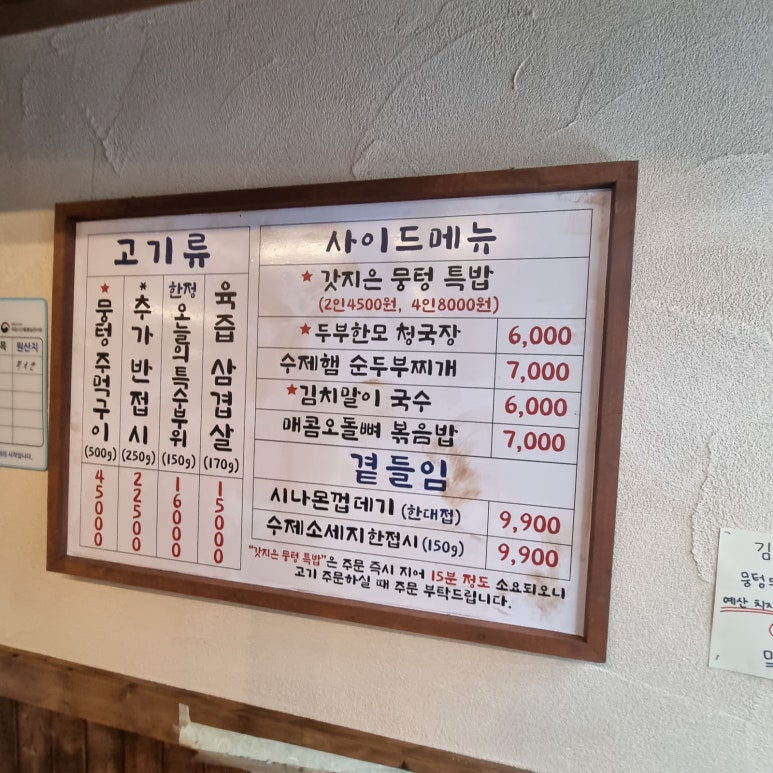 고기류
★뭉텅 주먹구이
(500g)
45000
*추가 반접시
(250g)
22500
한정 오늘의 특수부위
(150g)
16000
육즙 삼겹살
(170g)
15000
사이드메뉴
★ 갓지은 뭉텅 특밥
(2인4500원, 4인8000원)
★두부한모 청국장 6,000
수제햄 순두부찌개 7,000
★김치말이 국수 6,000
매콤오돌뼈 볶음밥 7,000
곁들임
시나몬껍데기 (한대접) 9,900
수제소세지한접시 (150g) 9,900
"갓지은 뭉텅 특밥"은 주문 즉시 지어 15분 정도 소요되오니
고기 주문하실 때 주문 부탁드립니다.
원산지
김
뭉텅
예산